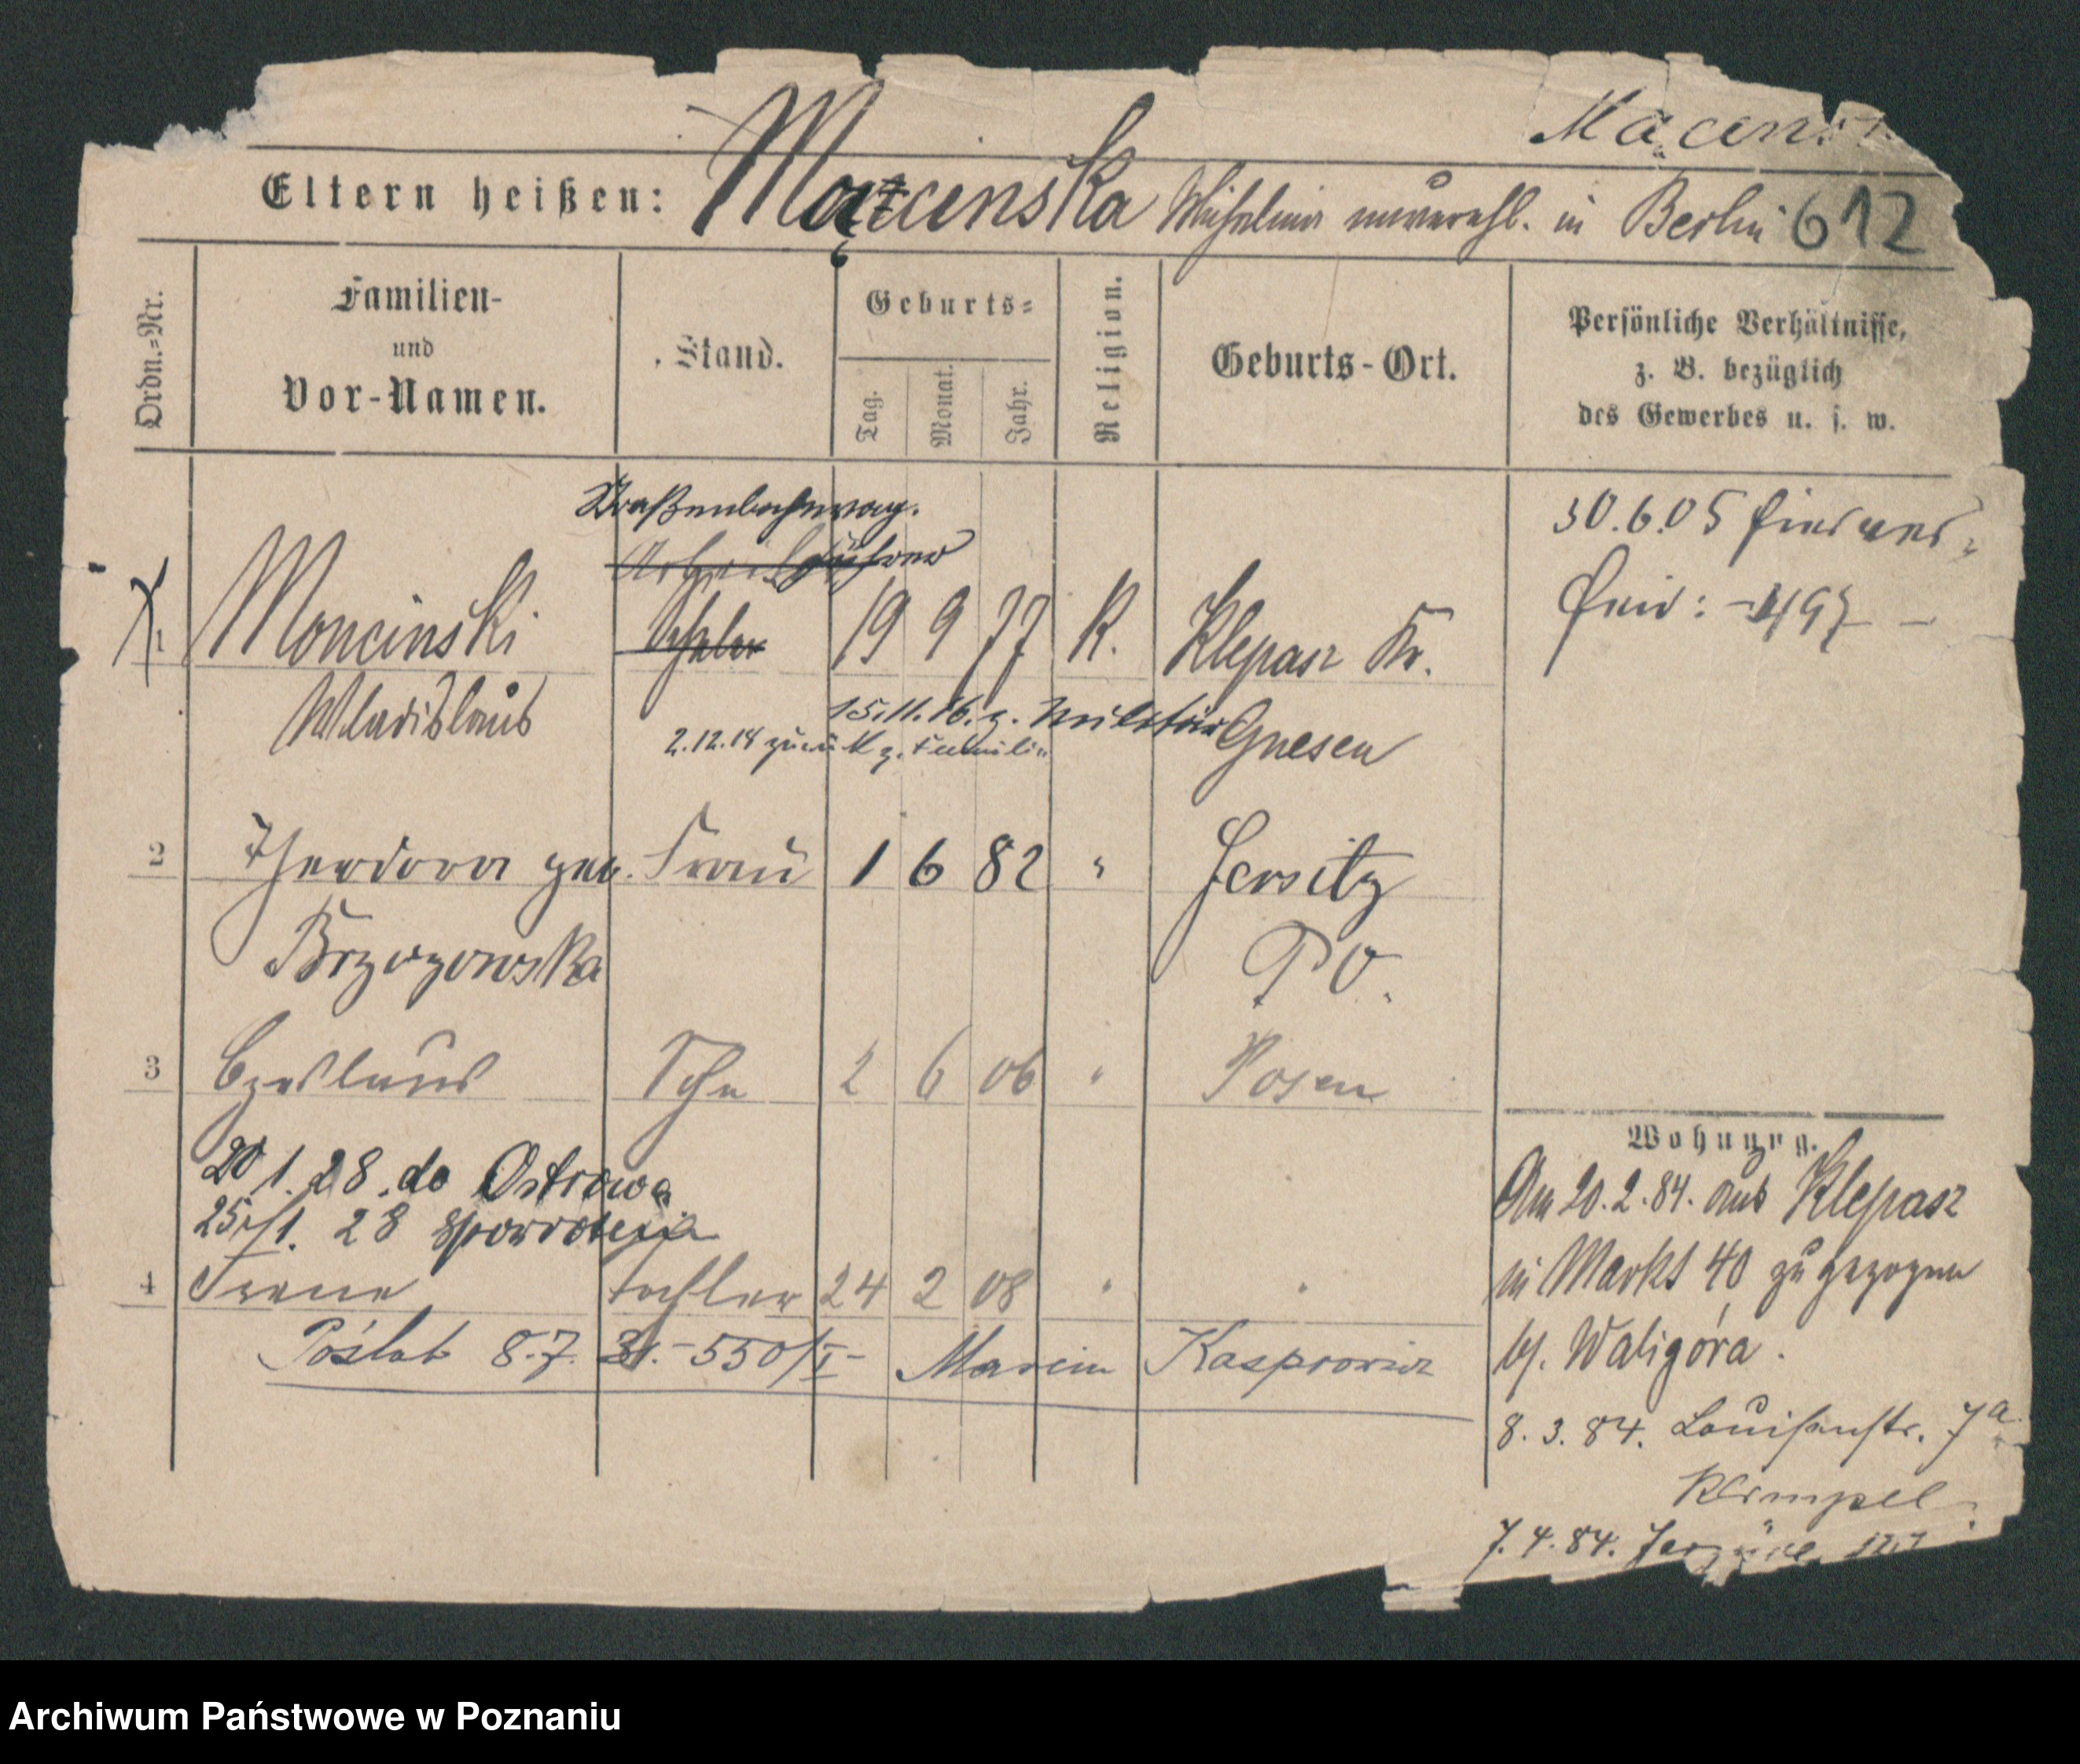 Eltern heißen: Mącinska unverehl. in Berlin 612
Ordn.=Nr.
Familien-
und
Vor-Namen.
Stand.
Geburts=
Tag.
Monat.
Jahr.
Religion.
Geburts-Ort.
Persönliche Verhältnisse,
z. B. bezüglich
des Gewerbes u. s. w.
Straßenbahnwag.
führer
1 Moncinski 19 9 77 K. Klepasz Kr.
Wladislaus Gnesen
15.11.16. z. Militär
2.12.18 zurück z. Familie
30.6.05
2 Theodora geb. Frau 1 6 82 " Jersitz
Brzozowska PO.
3 Czeslaus Sohn 2 6 06 " Posen
20 1. 28. do Ostrowa
28 spowrotem
4 Irene tochter 24 2 08 " "
Poślub 8.7. 31.-550/I- Marcin Kasprowicz
Wohnung.
Am 20.2.84. aus Klepasz
in Markt 40 zugezogen
bj. Waligóra.
8. 3. 84. Louisenstr. 7a
Klimpel
7. 4. 84.
Archiwum Państwowe w Poznaniu